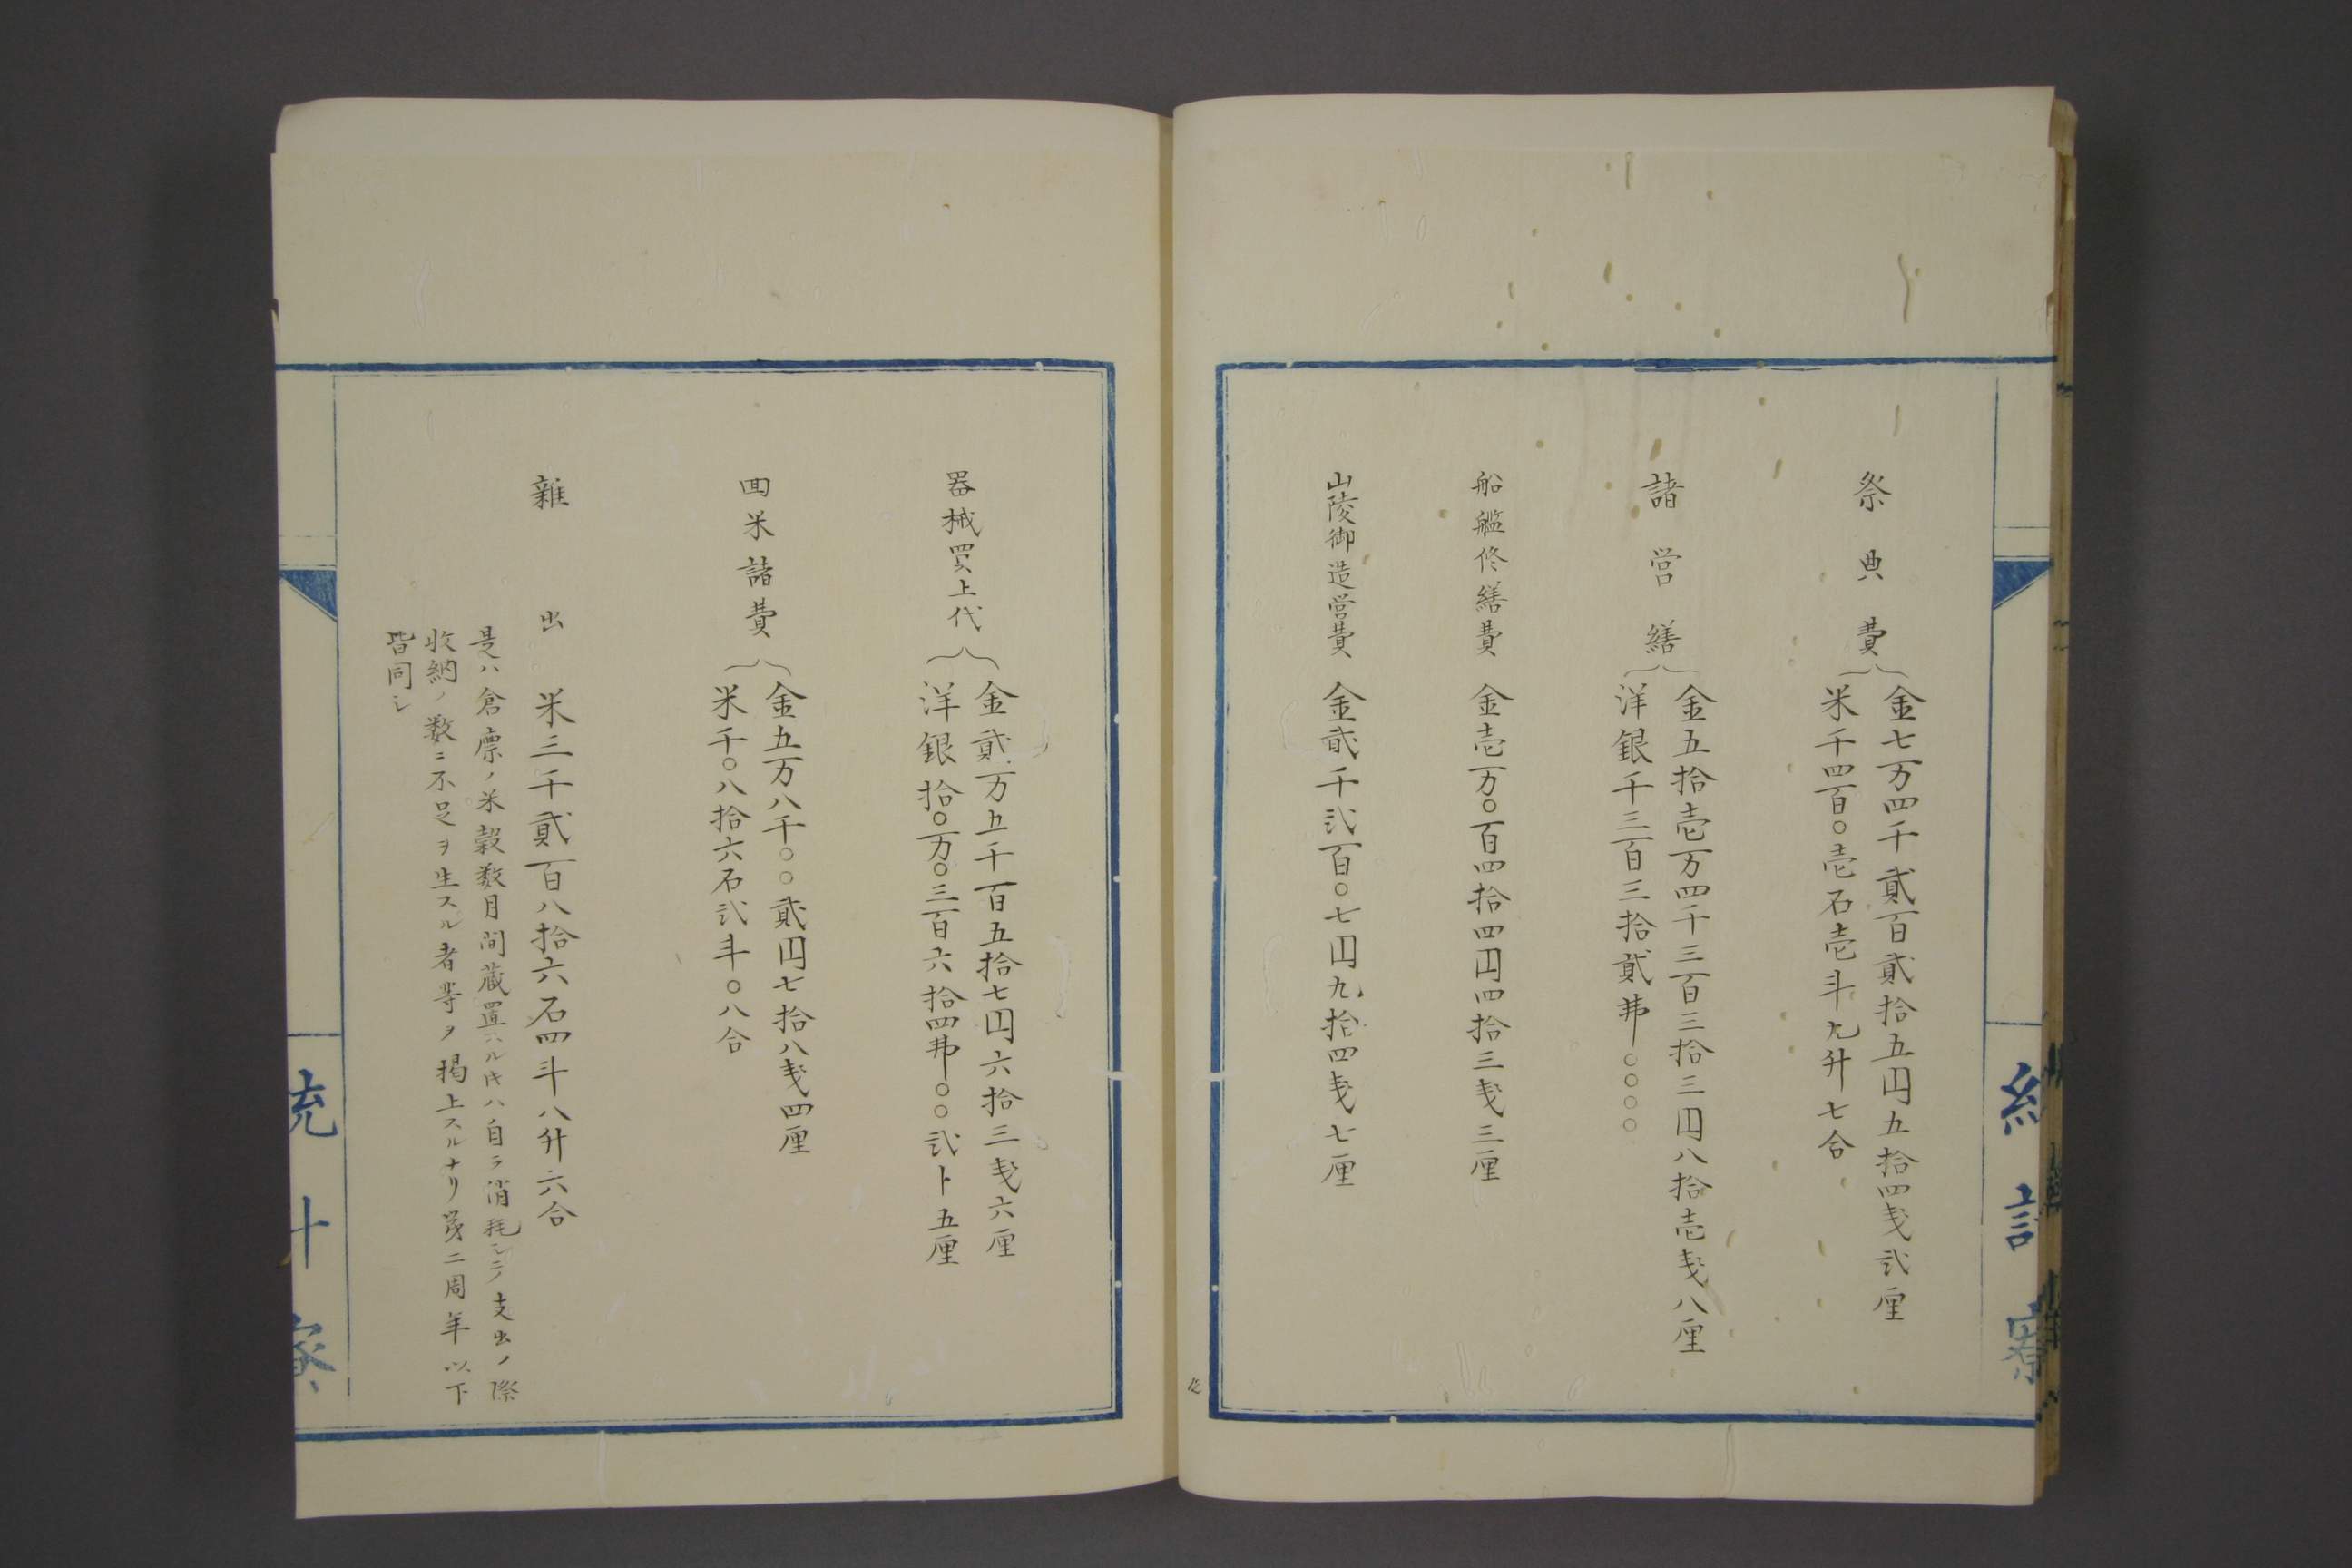 祭典費
金七万四千貳百貳拾五円五拾四戔弐厘
米千四百〇壱石壱斗九升七合
諸営繕
金五拾壱万四千三百三拾三円八拾壱戔八厘
洋銀千三百三拾貳弗〇〇〇〇
船艦修繕費 金壱万〇百四拾四円四拾三戔三厘
山陵御造営費 金貮千弐百〇七円九拾四戔七厘
器械買上代
金貮万五千百五拾七円六拾三戔六厘
洋銀拾〇万〇三百六拾四弗〇〇弐ト五厘
囬米諸費
金五万八千〇〇貳円七拾八戔四厘
米千〇八拾六石弐斗〇八合
雑出 米三千貳百八拾六石四斗八升六合
是ハ倉廪ノ米穀数月間蔵置スル片ハ自ラ消耗シテ支出ノ際
收納ノ数ニ不足ヲ生スル者等ヲ掲上スルナリ㐧二周年以下
皆同シ
統計寮